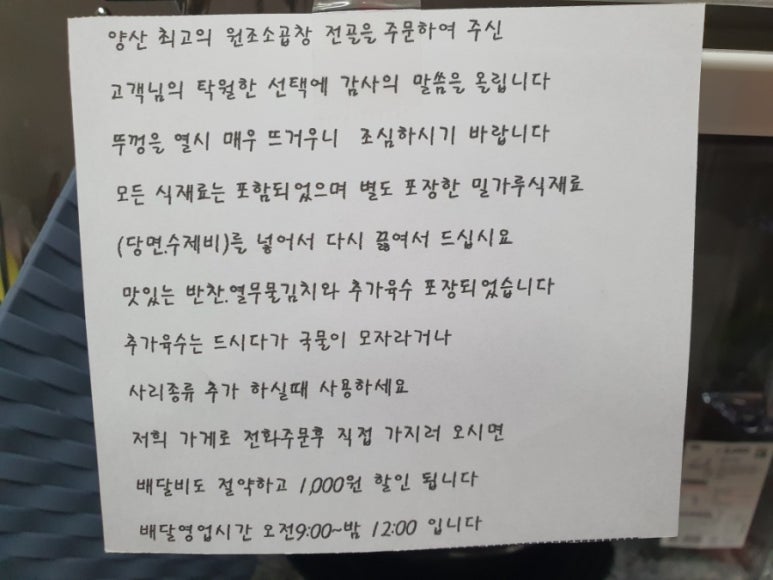 양산 최고의 원조소곱창 전골을 주문하여 주신
고객님의 탁월한 선택에 감사의 말씀을 올립니다
뚜껑을 열시 매우 뜨거우니 조심하시기 바랍니다
모든 식재료는 포함되었으며 별도 포장한 밀가루식재료
(당면.수제비)를 넣어서 다시 끓여서 드십시요
맛있는 반찬.열무물김치와 추가육수 포장되었습니다
추가육수는 드시다가 국물이 모자라거나
사리종류 추가 하실때 사용하세요
저희 가게로 전화주문후 직접 가지러 오시면
배달비도 절약하고 1,000원 할인 됩니다
배달영업시간 오전9:00~밤 12:00 입니다